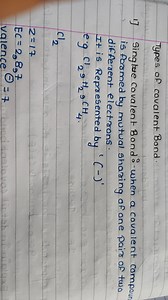 Types of covalent Bond
1) Single Covalent Bond :- When a covalent compoun
is formed by mutual sharing of one pair of two
different electrons.
It is Represented by '(-)'
e.g Cl2, H2, CH4,
Cl2
Z = 17
EC = 2,8,7
valence e = 7